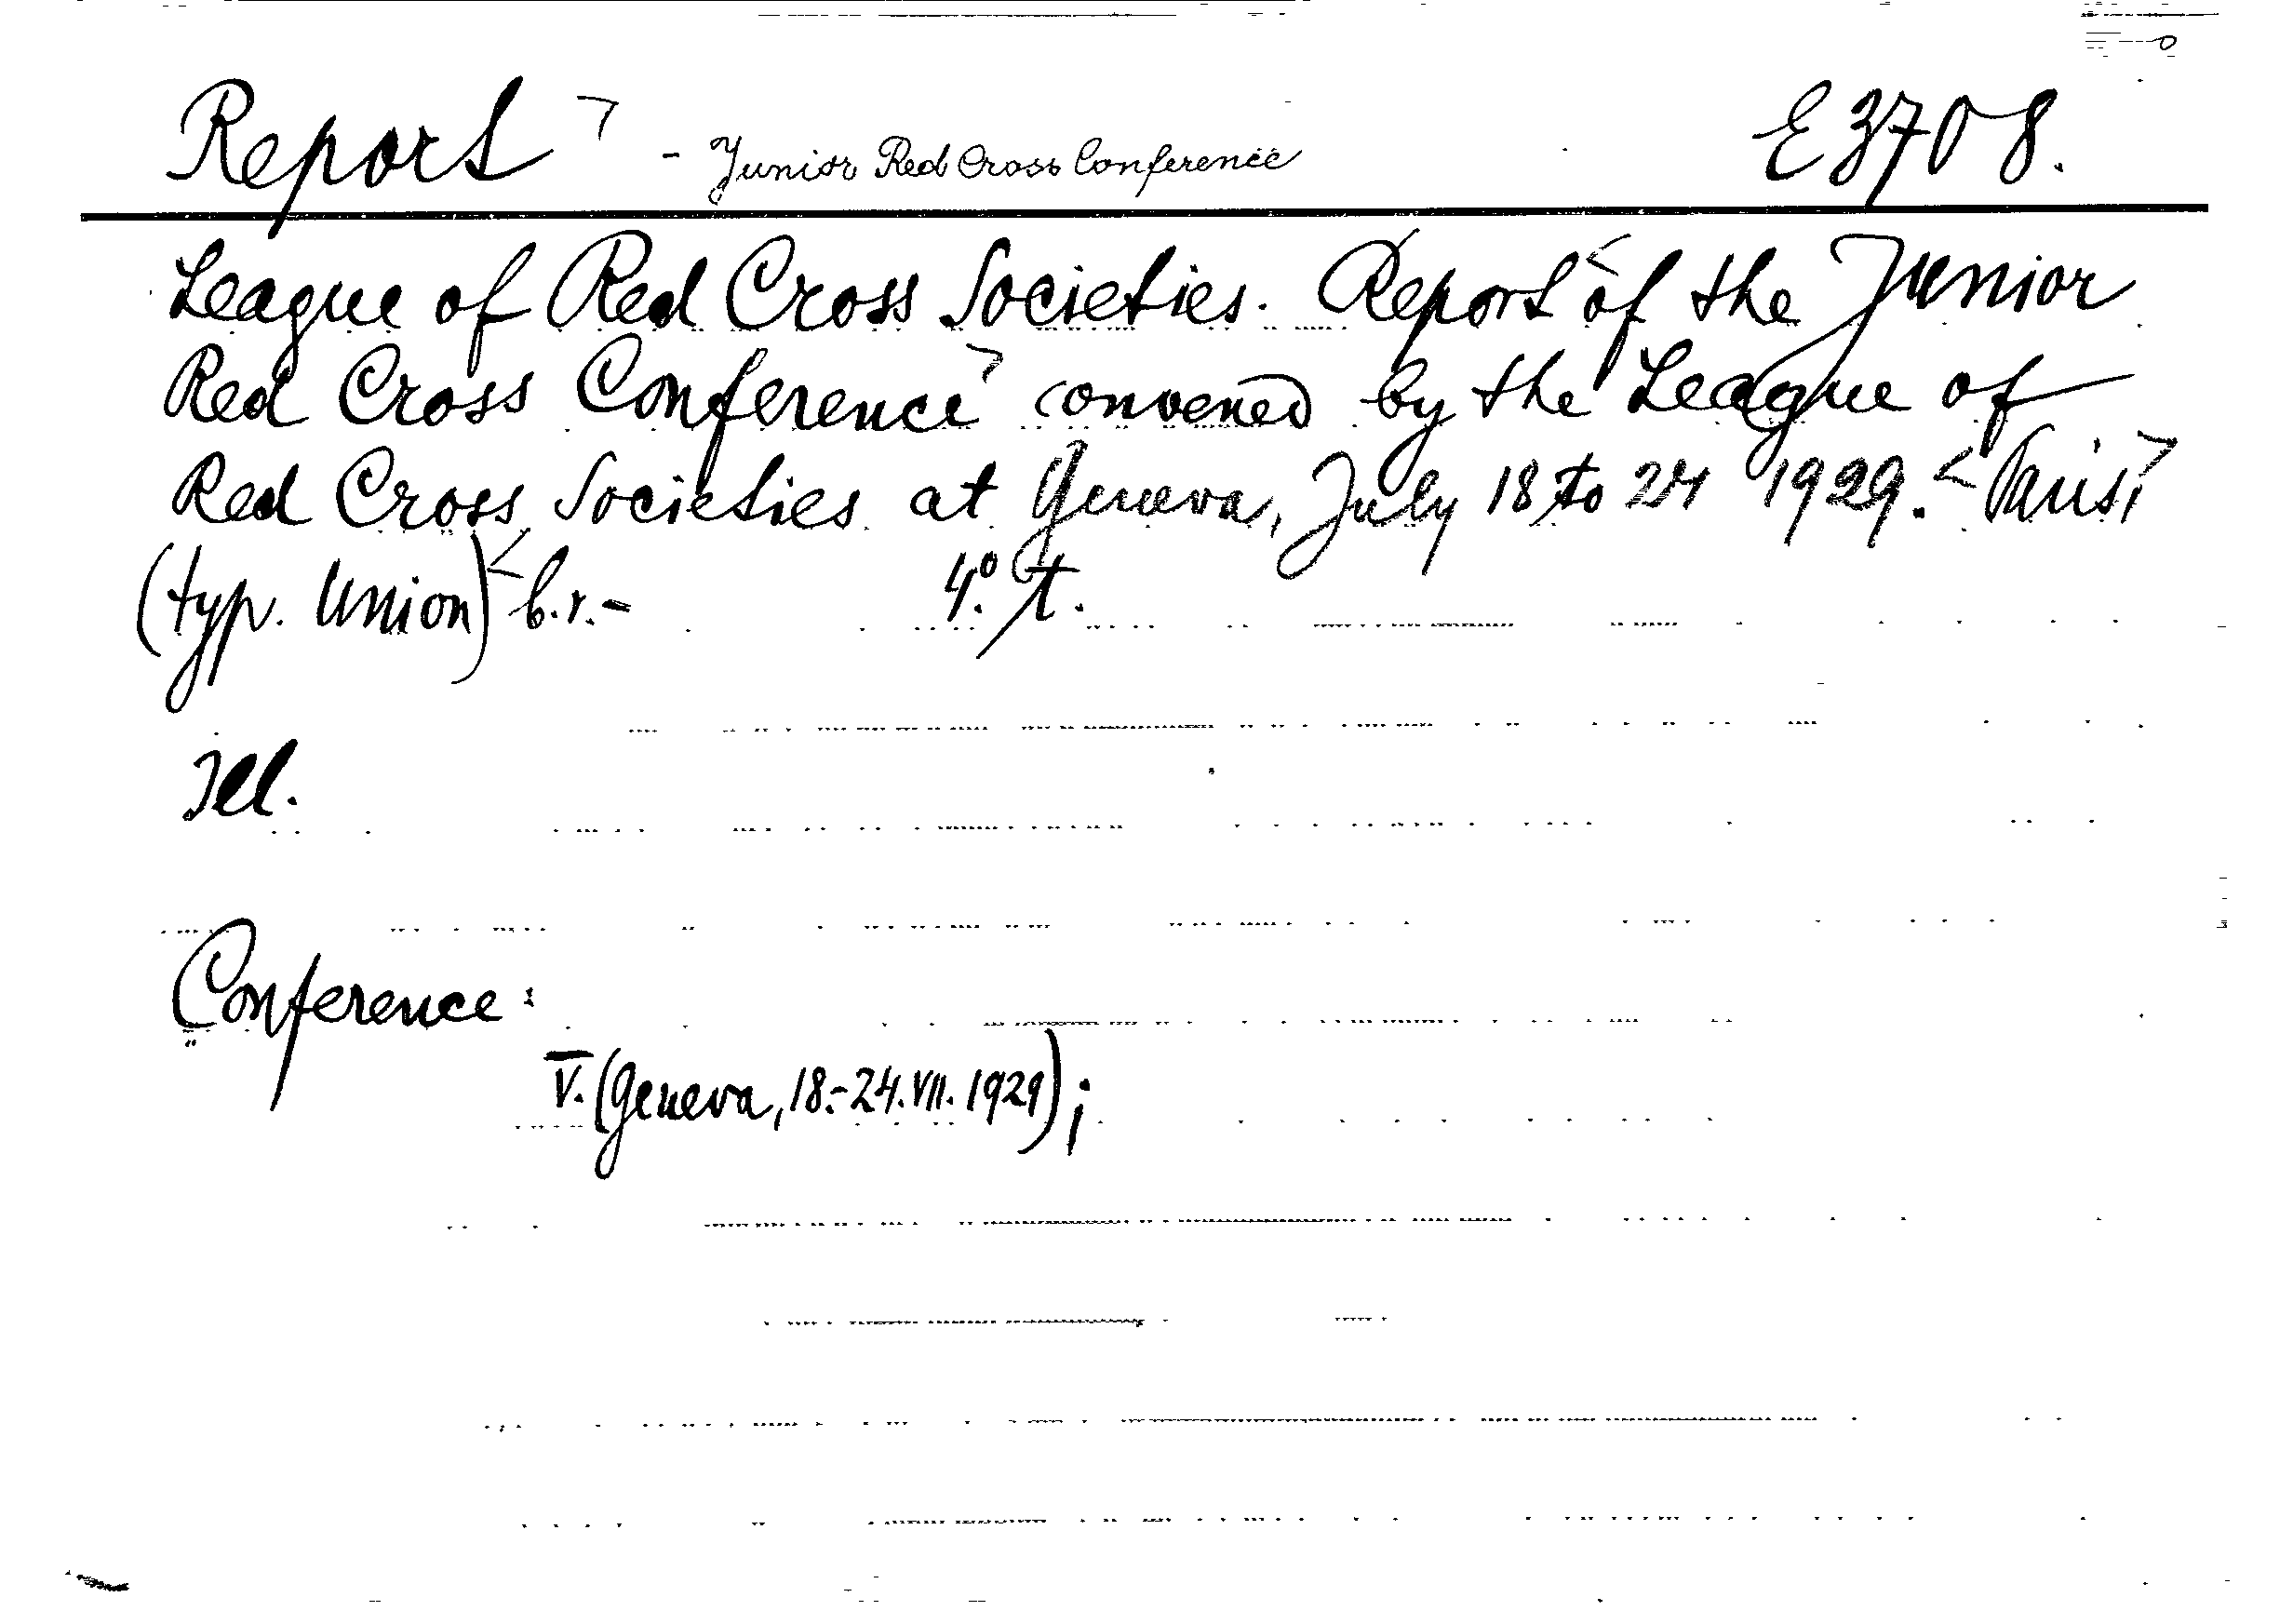 Report - Junior Red Cross Conference E3708.
League of Red Cross Societies. Report of the Junior
Red Cross Conference convened by the League of
Red Cross Societies at Geneva, July 18 to 24 1929. Paris,
(typ. Union) b.r.- 4°. t.
Ill.
Conference:
V. (Geneva, 18.-24.VII.1929);